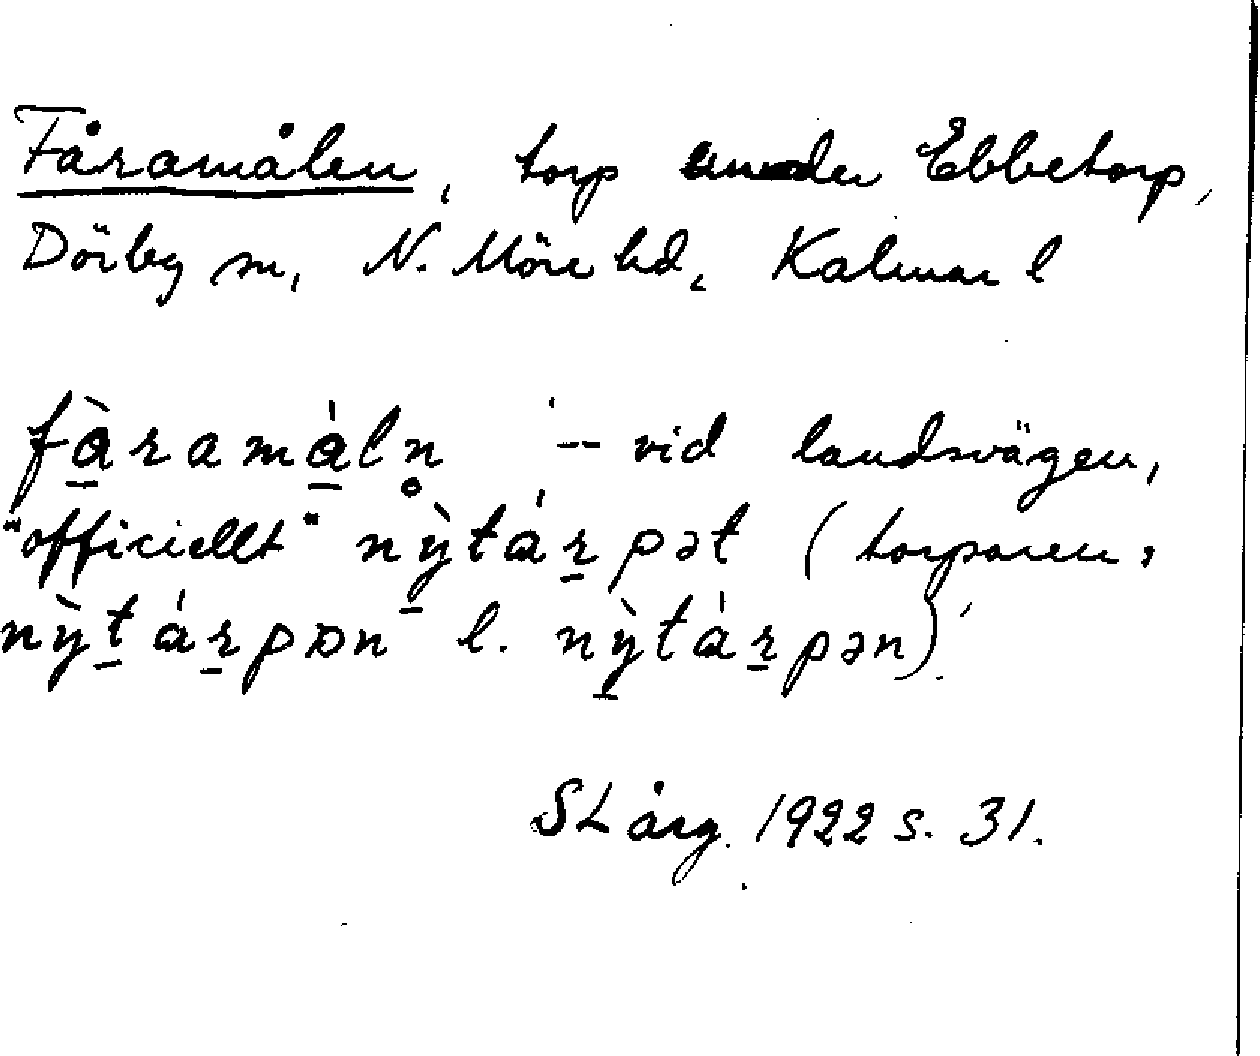 Fåramålen, torp under Ebbetorp,
Dörby sn, N. Möre hd, Kalmar l
fà̱ramá̱ln̥ '-- vid landsvägen,
"officiellt" nỳtáṟpət (torparen:
nỳṯáṟpɒn l. nỳ̱táṟpən).
SL årg. 1922 s. 31.